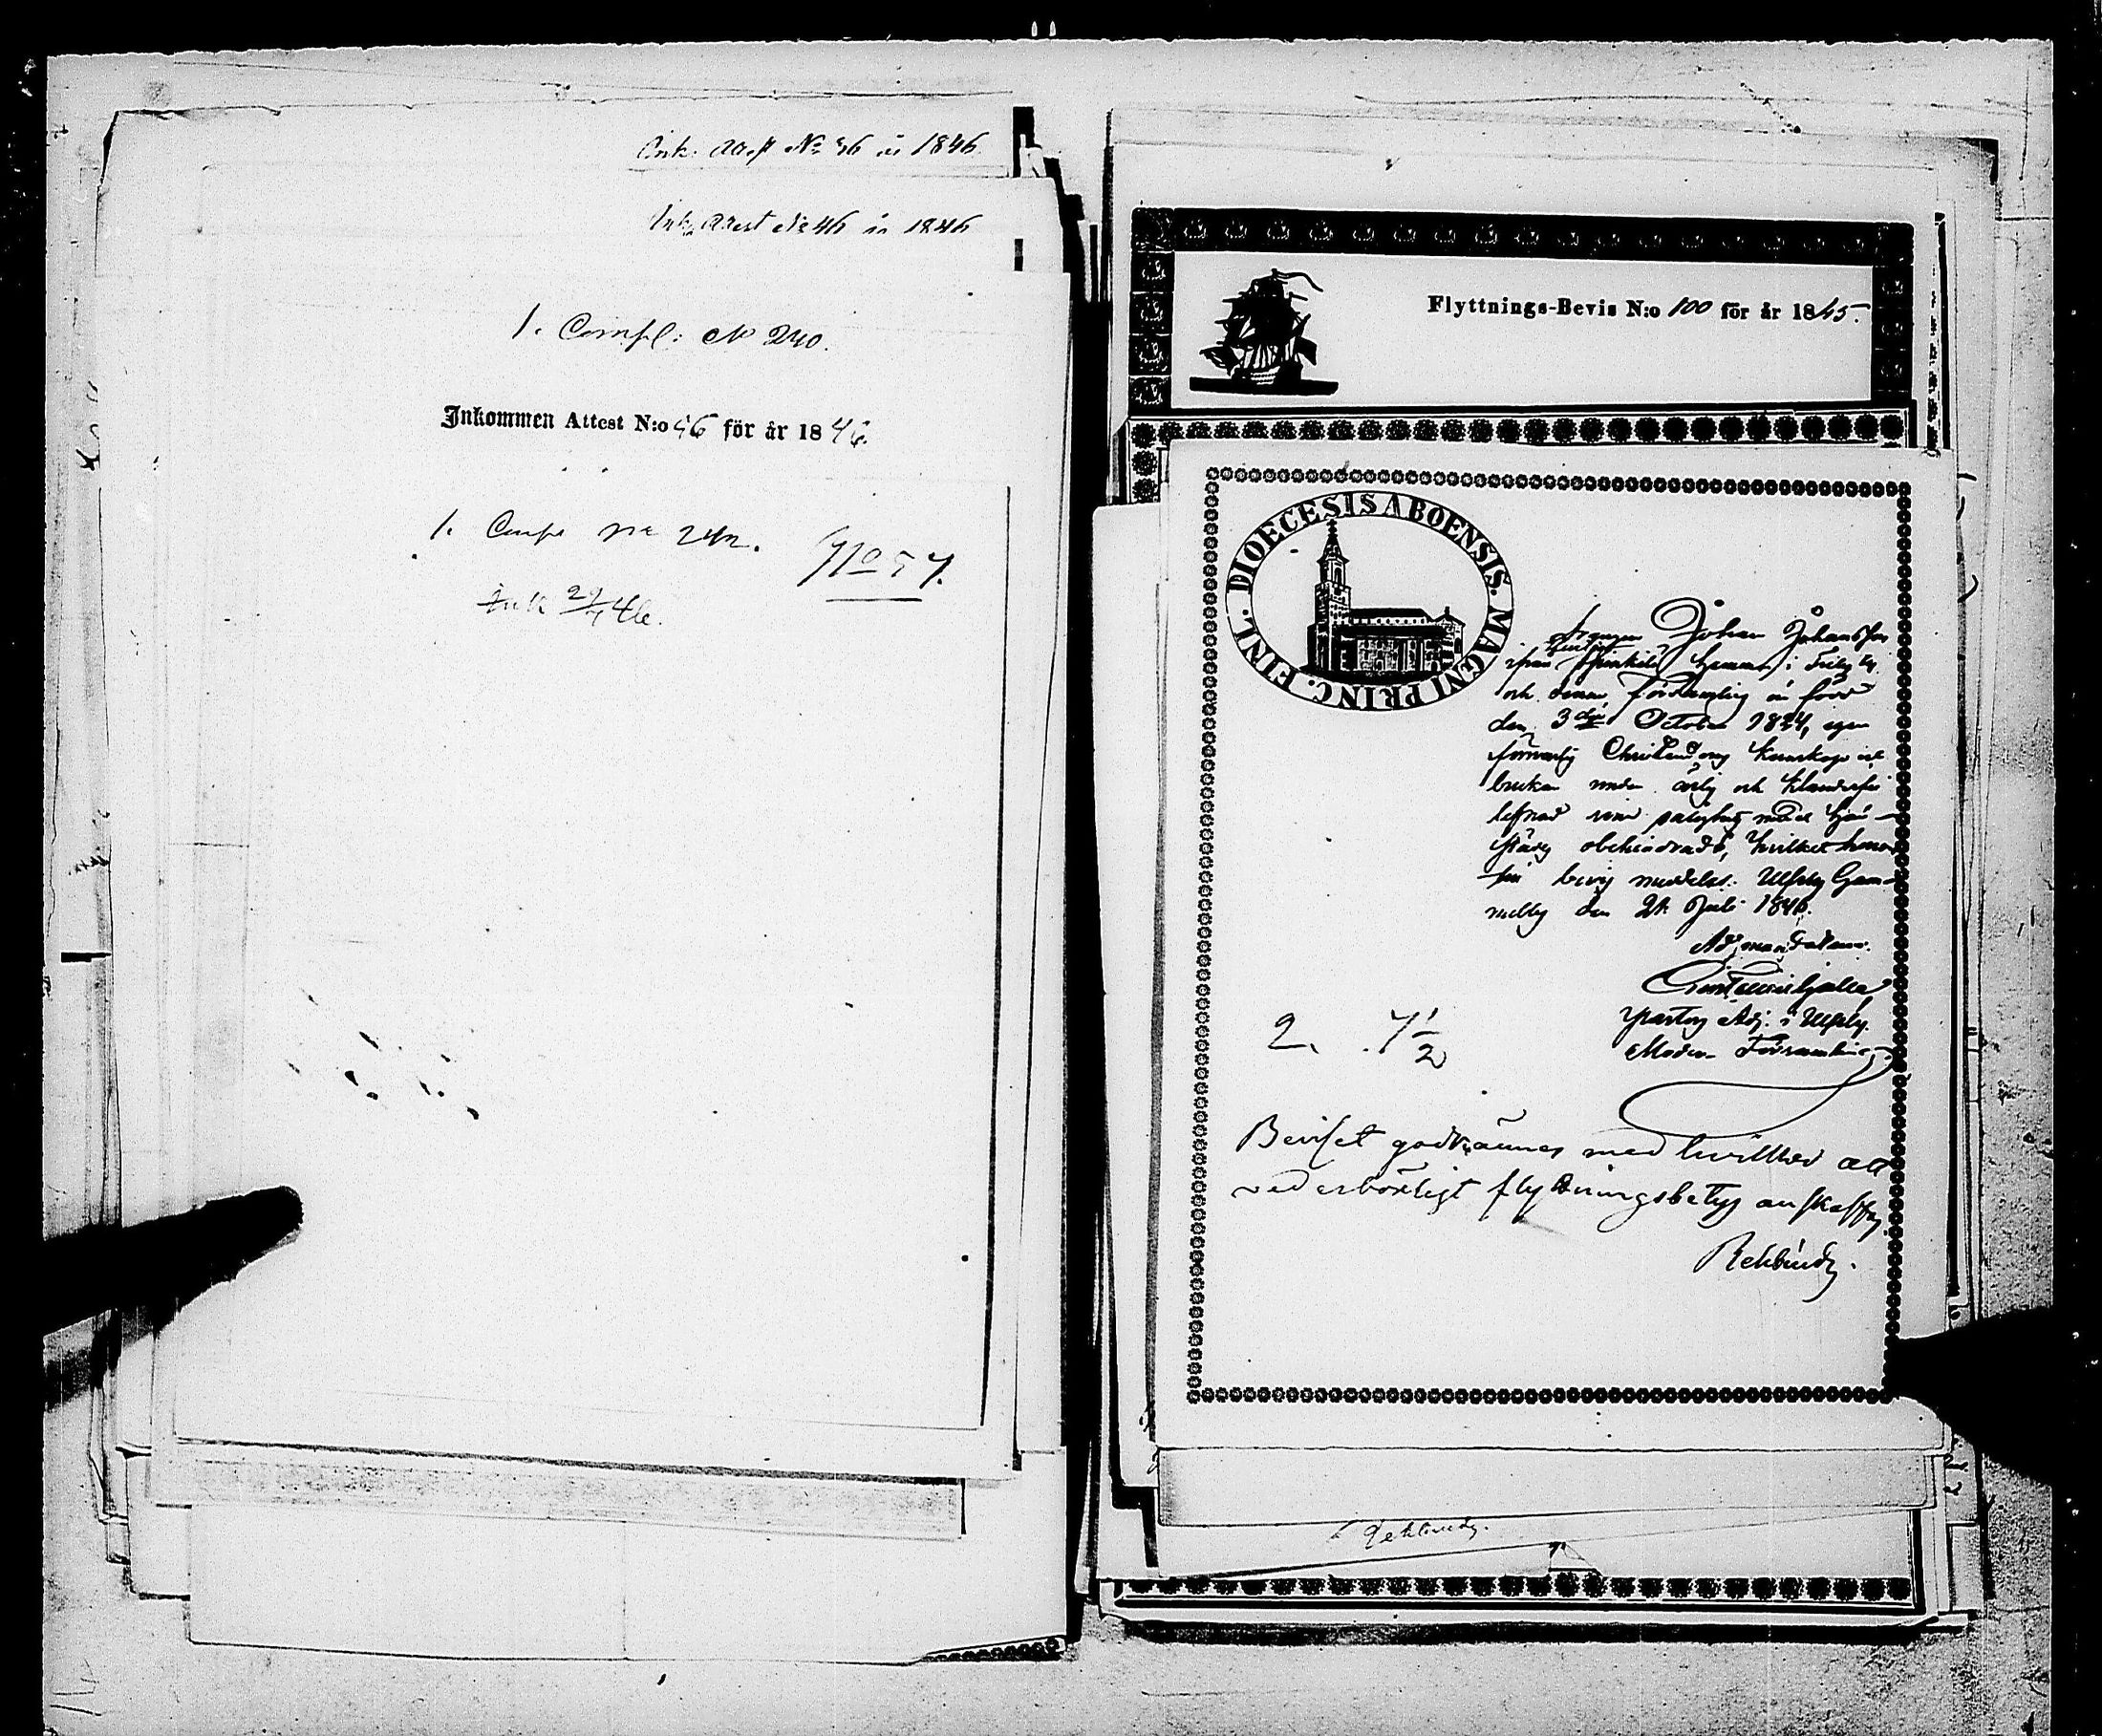 Ink. Attest No 36 år 1846
Ink. Attest No 46 år 1846
1. Compl: No 240.
Inkommen Attest N:o 46 för år 1846.
1. Comp No 242.
No 57.
Ink 29/7 46.
Flyttnings-Bevis N:o 100 för år 1845.
DIOECESIS ABOENSIS. MAGNI PRINC. FINL.
Drengen Johan Johansson
ifrån hemman i
och denna Församling är född
den 3dje October 1824, eger
försvarlig Christendoms kunskap
under ärlig och
lefnad sine
obehindradt, hvilket
bevis meddelas. Ulfsby Gam-
melby den 21 Juli 1846.
Ad mandatum.
Pastors Adj. i Ulfsby
Moder Församling
2. 7 1/2
Beviset godkännes med hvillkor att
vederbörligt flyttningsbetyg anskaffas
Rehbinder.
Rehbinder.